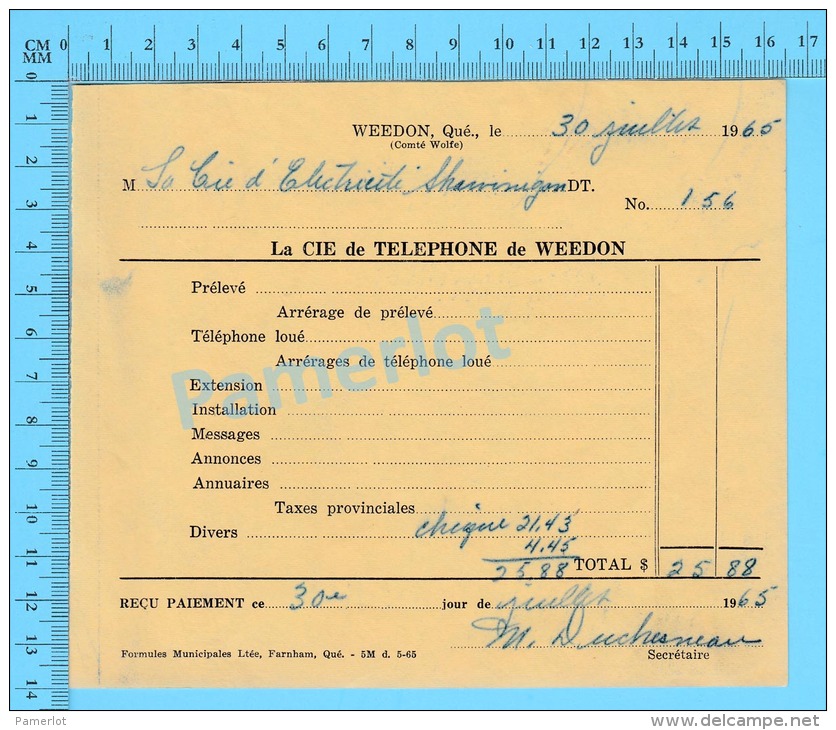 CM 0 1 2 3 4 5 6 7 8 9 10 11 12 13 14 15 16 17
MM
0 1 2 3 4 5 6 7 8 9 10 11 12 13 14
WEEDON, Qué., le 30 juillet 1965
(Comté Wolfe)
M La Cie d'Electricité Shawinigan DT.
No. 156
La CIE de TELEPHONE de WEEDON
Prélevé
Arrérage de prélevé
Téléphone loué
Arrérages de téléphone loué
Extension
Installation
Messages
Annonces
Annuaires
Taxes provinciales
Divers chèque 21.43
4.45
25.88 TOTAL $ 25 88
REÇU PAIEMENT ce 30e jour de juillet 1965
M. Duchesneau
Formules Municipales Ltée, Farnham, Qué. - 5M d. 5-65 Secrétaire
Pamerlot
Pamerlot
www.delcampe.net